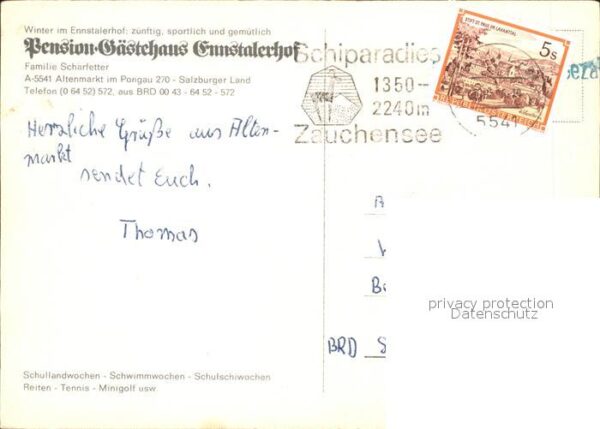 Winter im Ennstalerhof: zünftig, sportlich und gemütlich
Pension-Gästehaus Ennstalerhof
Familie Scharfetter
A-5541 Altenmarkt im Pongau 270 - Salzburger Land
Telefon (0 64 52) 572, aus BRD 00 43 - 64 52 - 572
Schiparadies
1350-
2240m
Zauchensee
STIFT ST. PAUL IM LAVANTTAL
5s
REPUBLIK ÖSTERREICH
5541
Herzliche Grüße aus Alten-
markt
sendet Euch.
Thomas
BRD S
privacy protection
Datenschutz
Schullandwochen - Schwimmwochen - Schulschiwochen
Reiten - Tennis - Minigolf usw.